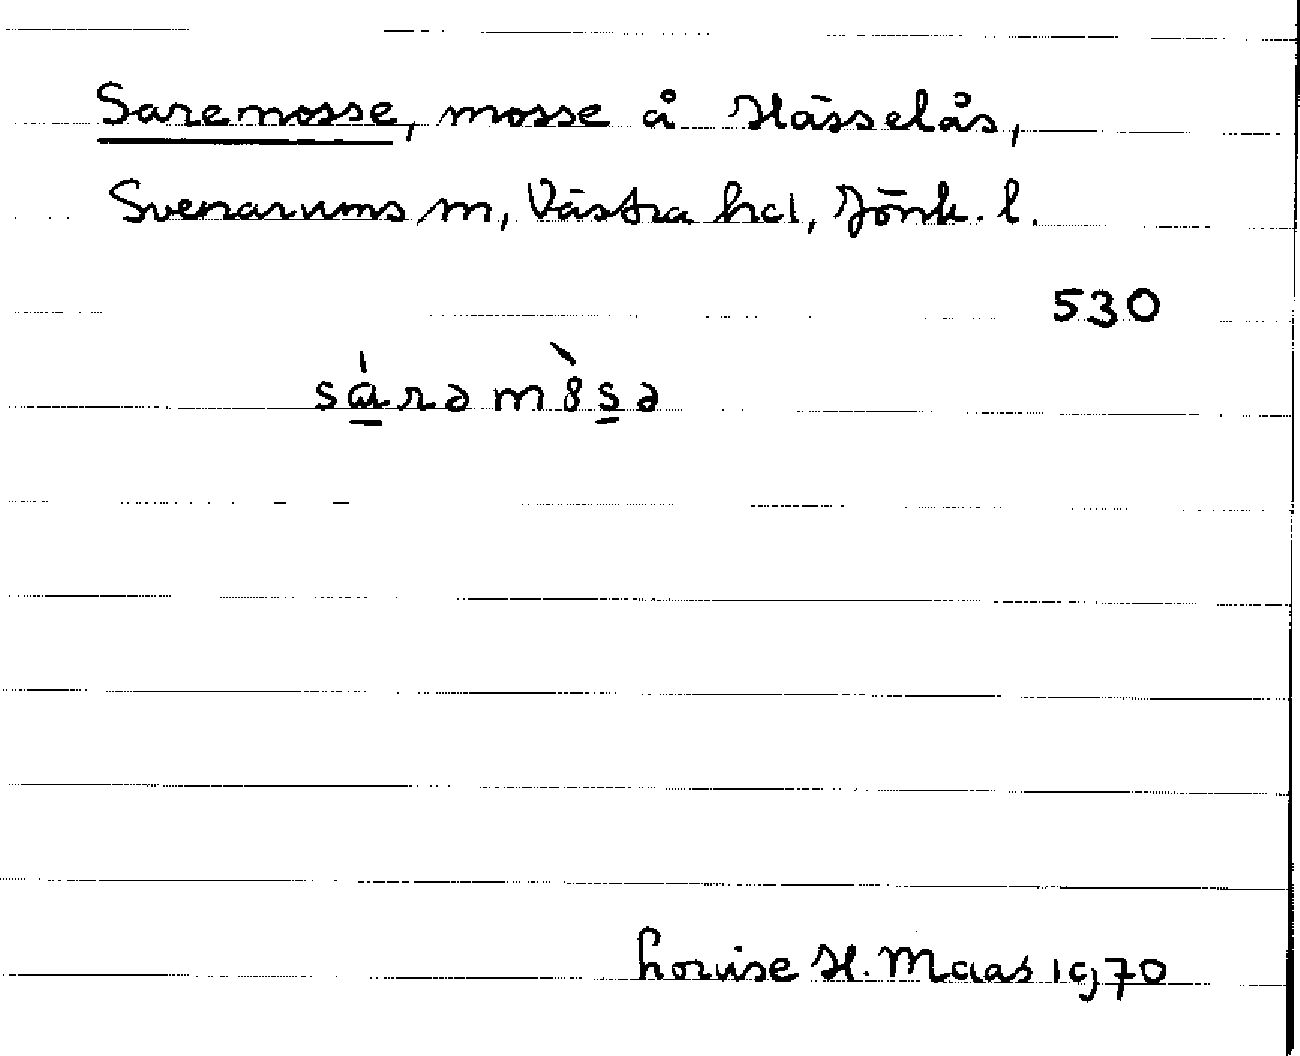 Saremosse, mosse å Hässelås,
Svenarums sn, Västra hd, Jönk. l.
530
sárəmòsə
Louise H. Maas 1970